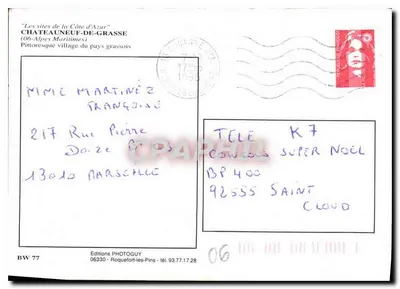 "Les sites de la Côte d'Azur"
CHATEAUNEUF-DE-GRASSE
(06-Alpes Maritimes)
Pittoresque village du pays grassois
MME MARTINEZ
FRANÇOISE
217 Rue Pierre
13010 MARSEILLE
TELE K7
CONCOURS SUPER NOËL
BP 400
92555 SAINT
CLOUD
06
BW 77
Editions PHOTOGUY
06330 - Roquefort-les-Pins - tél. 93.77.17.28